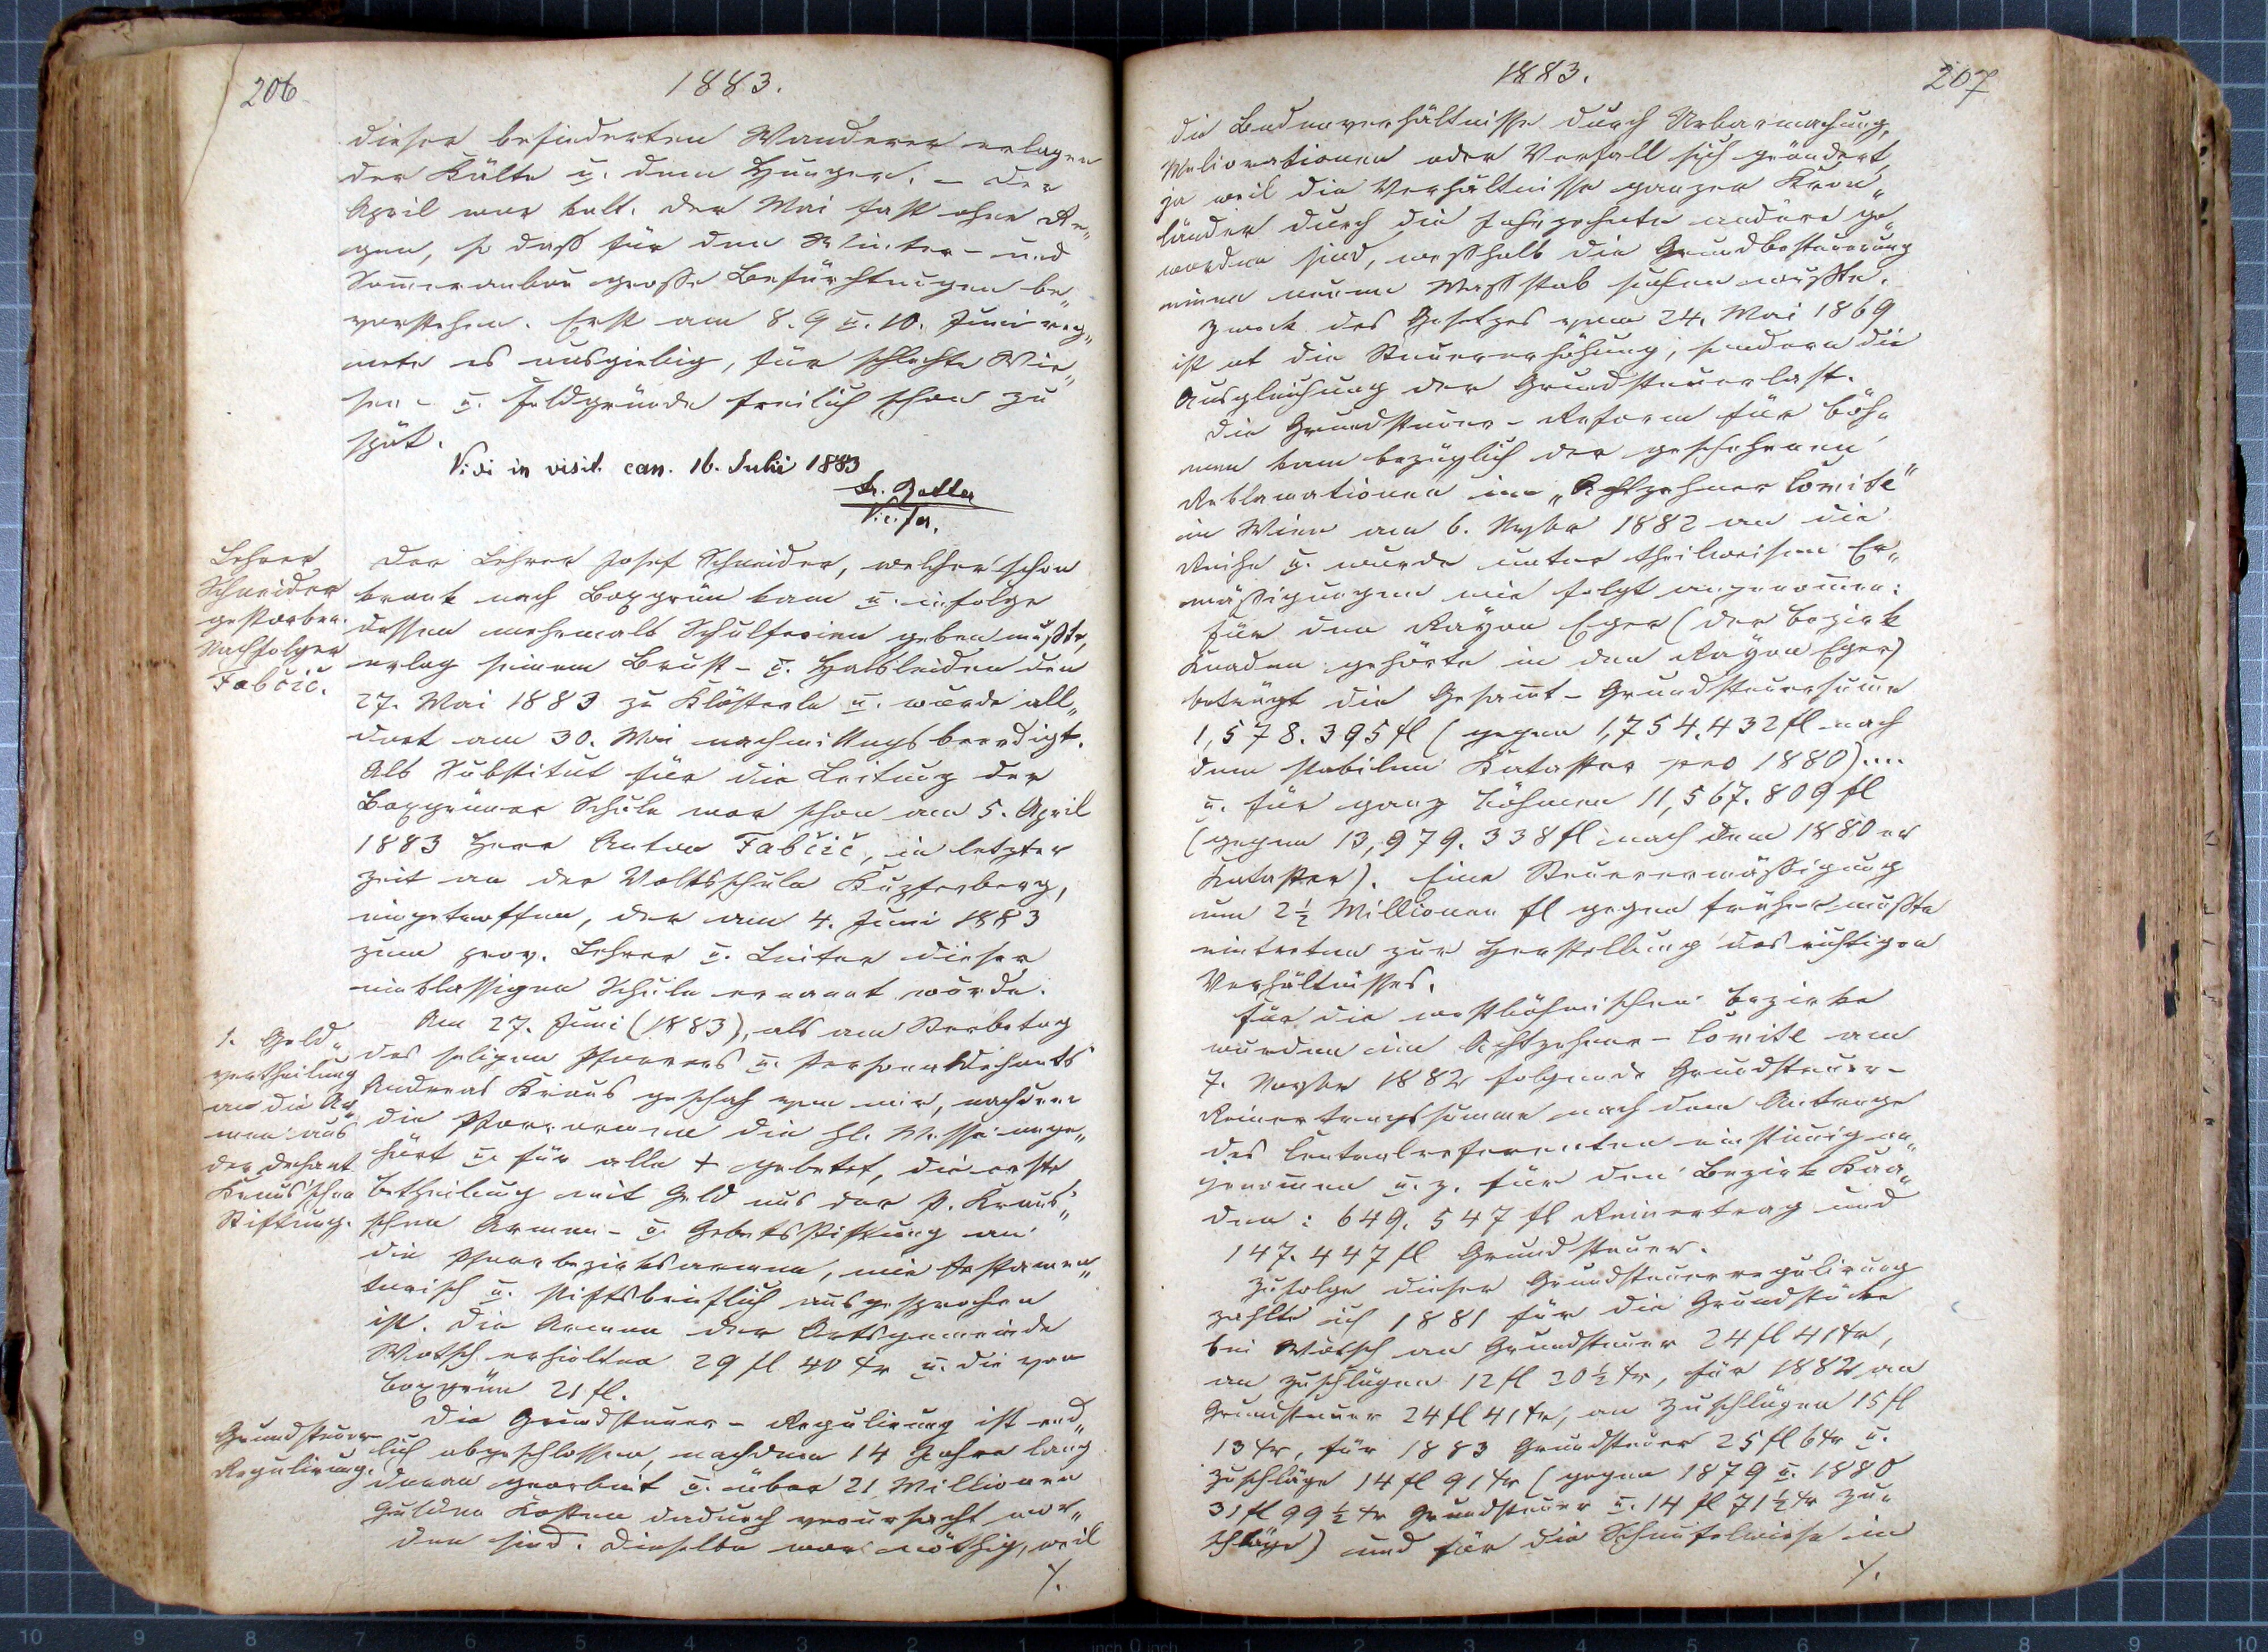 206
1883.
dieser befiederten Wanderer erlagen
der Kälte u. dem Hunger. – Der
April war kalt. Der Mai fast ohne Re„
gen, so daß für den Winter- und
Sommeranbau große Befürchtungen be„
vorstehen. Erst am 8. 9 u. 10. Juni reg„
nete es ausgiebig, für schlechte Wie„
sen- u. Feldgründe freilich schon zu
spät.
Vidi in visit. can. 16. Julii 1883
Lehrer
Schneider
gestorben.
Nachfolger
Fabčič.
Der Lehrer Josef Schneider, welcher schon
krank nach Boxgrün kam u. infolge
dessen mehrmals Schulferien geben mußte,
erlag seinem Brust- u. Halsleiden den
27. Mai 1883 zu Klösterle u. wurde all„
dort am 30. Mai nachmittags beerdigt.
Als Substitut für die Leitung der
Boxgrüner Schule war schon am 5. April
1883 Herr Anton Fabčič, in letzter
Zeit an der Volksschule Kupferberg,
eingetroffen, der am 4. Juni 1883
zum prov. Lehrer u. Leiter dieser
einklassigen Schule ernannt wurde.
1. Geld„
vertheilung
an die Ar„
men aus
der Dechant
Kraus'schen
Stiftung.
Am 27. Juni (1883), als am Sterbetag
des seligen Pfarrers u. Personaldechants
Andreas Kraus geschah von mir, nachdem
die Pfarrarmen die hl. Messe ange„
hört u. für alle + gebetet, die erste
Betheilung mit Geld aus der P. Kraus'„
schen Armen- u. Gebetsstiftung an
die Pfarrbezirksarmen, wie testamen„
tarisch u. stiftsbrieflich ausgesprochen
ist. Die Armen der Ortsgemeinde
Wotsch erhielten 29 fl 40 kr u. die von
Boxgrün 21 fl.
Grundsteuer-
Regulirung.
Die Grundsteuer-Regulirung ist end„
lich abgeschlossen, nachdem 14 Jahre lang
daran gearbeit u. über 21 Millionen
Gulden Kosten dadurch verursacht wor„
den sind. Dieselbe war nöthig, weil
/.
1883.
207
die Bodenverhältnisse durch Urbarmachung,
Meliorationen oder Verfall sich geändert,
ja weil die Verhältnisse ganzer Kron„
länder durch die Jahrzehnte andere ge„
worden sind, weßhalb die Grundbesteuerung
einen neuen Maßstab suchen mußte.
Zweck des Gesetzes vom 24. Mai 1869
ist nt die Steuererhöhung, sondern die
Ausgleichung der Grundsteuerlast.
Die Grundsteuer-Reform für Böh„
men kam bezüglich der geschehenen
Reklamationen im „Achtzehner Comité"
in Wien am 6. Novbr 1882 an die
Reihe u. wurde unter theilweisen Er„
mäßigungen wie folgt angenommen:
Für den Rayon Eger (der Bezirk
Kaaden gehörte in den Rayon Eger)
beträgt die Gesammt-Grundsteuersumme
1,578.395 fl (gegen 1,754.432 fl nach
dem stabilen Kataster pro 1880)....
u. für ganz Böhmen 11,567.809 fl
(gegen 13,979.338 fl nach dem 1880er
Kataster). Eine Steuerermäßigung
um 2½ Millionen fl gegen früher mußte
eintreten zur Herstellung des richtigen
Verhältnisses.
Für die westböhmischen Bezirke
wurden im Achtzehner-Comité am
7. Novbr 1882 folgende Grundsteuer-
Reinertragssumme nach dem Antrage
des Centralreferenten einstimmig an„
genommen u. z. für den Bezirk Kaa„
den: 649.547 fl Reinertrag und
147.447 fl Grundsteuer.
Zufolge dieser Grundsteuerregulirung
zahlte ich 1881 für die Grundstücke
bei Wotsch an Grundsteuer 24 fl 41 kr,
an Zuschlägen 12 fl 20½ kr, für 1882 an
Grundsteuer 24 fl 41 kr, an Zuschlägen 15 fl
13 kr, für 1883 Grundsteuer 25 fl 6 kr u.
Zuschläge 14 fl 91 kr (gegen 1879 u. 1880
31 fl 99½ kr Grundsteuer u. 14 fl 71½ kr Zu„
schläge) und für die Schaufelwiese in
/.